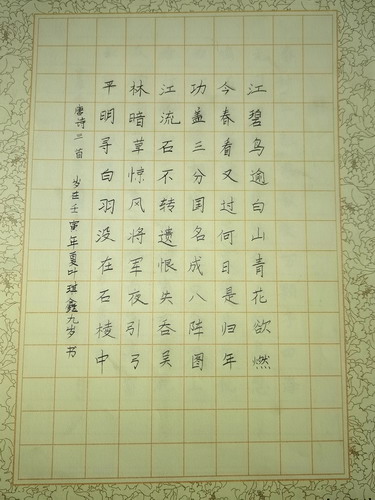 江碧鸟逾白山青花欲燃
今春看又过何日是归年
功盖三分国名成八阵图
江流石不转遗恨失吞吴
林暗草惊风将军夜引弓
平明寻白羽没在石棱中
唐诗三首 岁在壬寅年夏叶琪鑫九岁书